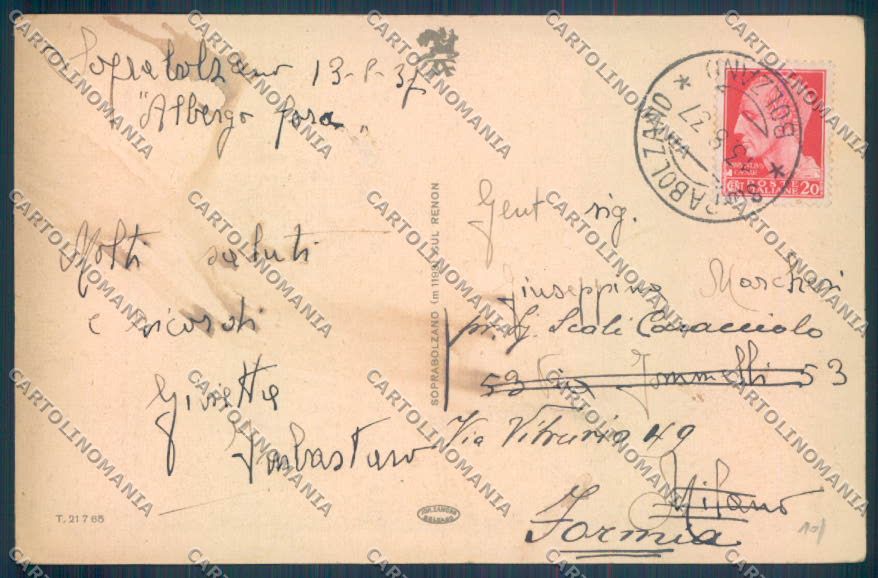 Soprabolzano 13-8-37
"Albergo Posta"
Molti saluti
e ricordi
Giulietta
SOPRABOLZANO (m 1198) SUL RENON
T. 21765
SOPRABOLZANO
BOLZANO
13 8 37
CENT POSTE ITALIANE 20
Gent sig.
Giuseppina Marcheri
pr. Scali Caracciolo
53 Via Jommelli 53
Via Vitruvio 49
Milano
Formia
CARTOLINOMANIA